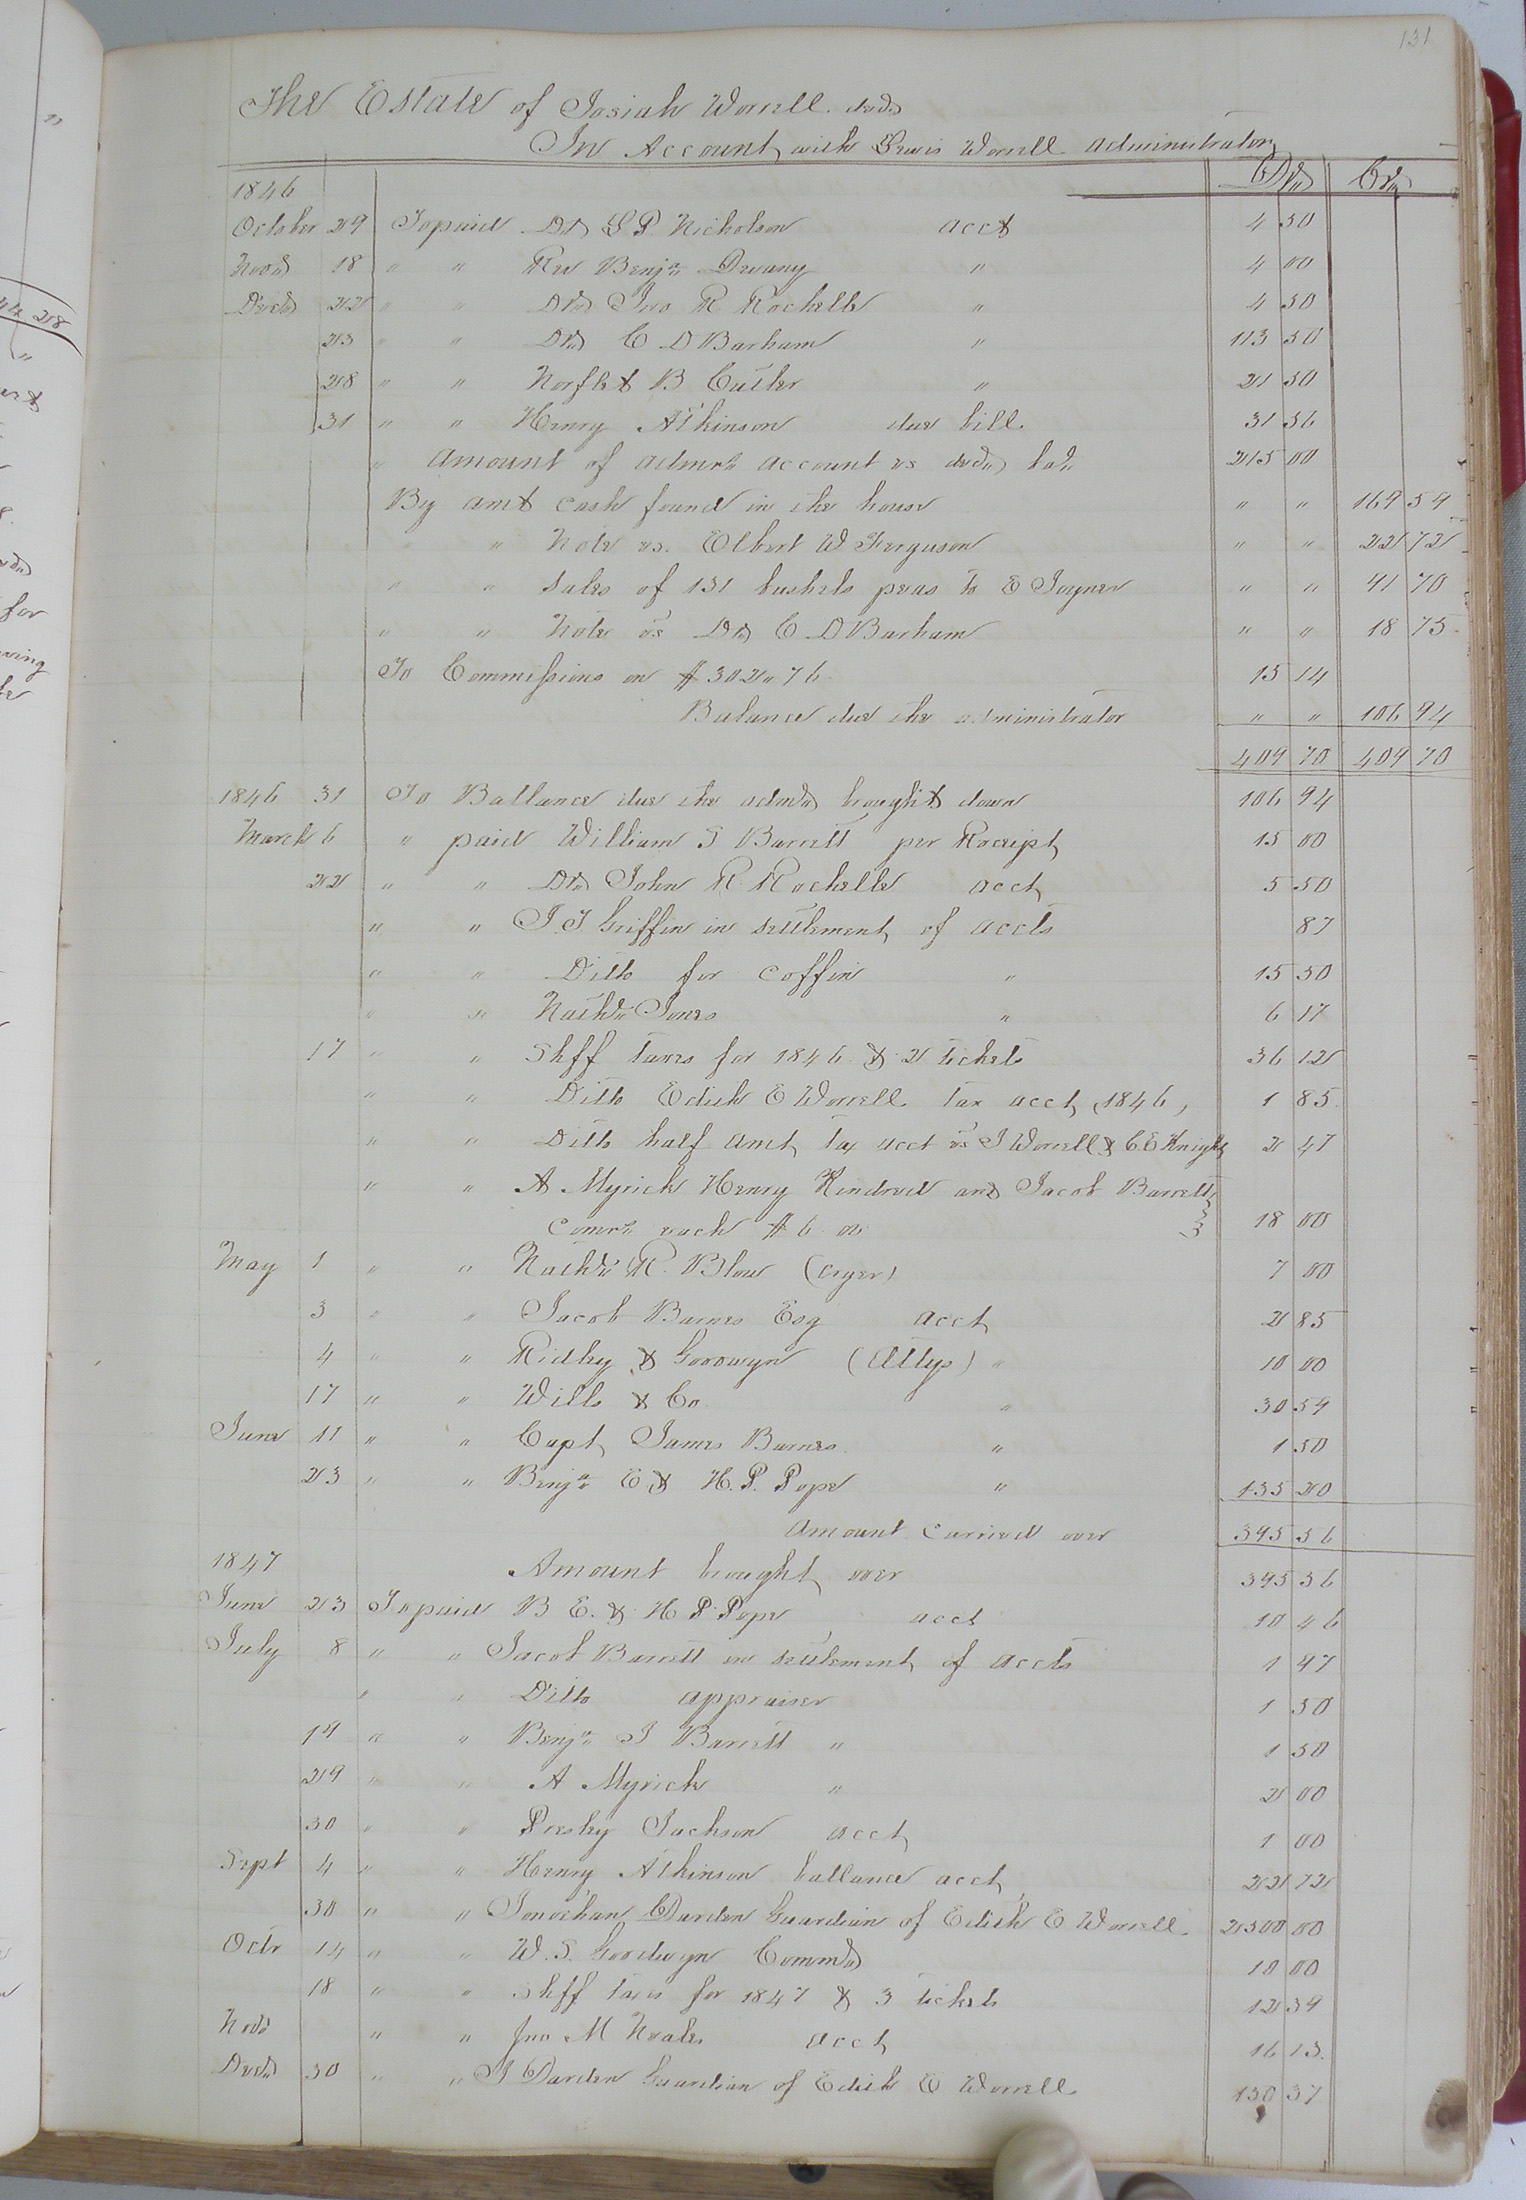 131
The Estate of Josiah Worrell decd
In Account with Lewis Worrell administrator
Dr. Cr.
1846
October 29 To paid Dr G P. Nicholson acct 4 50
Novr 18 " " Rev Benjn Devany " 4 00
Decr 22 " " Dr Jno R Rochelle " 4 50
23 " " Dr C D Barham " 113 50
28 " " Norflet B Cutler " 21 50
31 " " Henry Atkinson due bill 31 56
" Amount of admrs account vs decd 215 00
By amt cash found in the house " " 169 59
" " Note vs. Elbert W Ferguson " " 22 72
" " Sales of 131 bushels peas to E Joyner " " 91 70
" " Note vs Dr C D Barham " " 18 75
To Commissions on $302.76 15 14
Balance due the administrator " " 106 94
409 70 409 70
1846 31 To Ballance due the admr brought down 106 94
March 6 " paid William S Barrett per Receipt 15 00
22 " " Dr John R Rochelle acct 5 50
" " J. T. Griffin in settlement of accts 87
" " Ditto for coffin " 15 50
" " Nathl Jones " 6 17
17 " " Shff taxes for 1846 & 2 tickets 36 12
" " Ditto Edith E Worrell tax acct, 1846, 1 85
" " Ditto half amt tax acct vs J Worrell & C. E Knight 2 47
" " A Myrick Henry Kindred and Jacob Barrett
Comrs each $6 00 18 00
May 1 " " Nathl R. Blow (cryer) 7 00
3 " " Jacob Barnes Esq acct 2 85
4 " " Ridley & Goodwyn (Attys) " 10 00
17 " " Wills & Co. " 30 59
June 11 " " Capt James Barnes " 1 50
23 " " Benjn E & H. P. Pope " 135 20
Amount carried over 395 56
1847 Amount brought over 395 56
June 23 To paid B E. & H P Pope acct 10 46
July 8 " " Jacob Barrett in settlement of accts 1 97
" " Ditto appraiser 1 50
19 " " Benjn J Barrett " 1 50
29 " " A Myrick " 2 00
30 " " Presley Jackson acct 1 00
Sept 4 " " Henry Atkinson ballance acct 22 72
30 " " Jonathan Darden Guardian of Edith E Worrell 2500 00
Octr 14 " " W. S. Goodwyn Commr 10 00
18 " " Shff taxes for 1847 & 3 tickets 12 39
Novr " " Jno M Neale acct 16 13
Decr 30 " " J Darden Guardian of Edith E Worrell 150 37